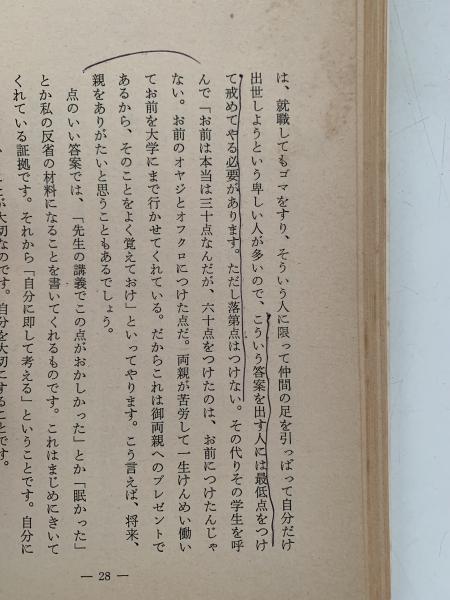 は、就職してもゴマをすり、そういう人に限って仲間の足を引っぱって自分だけ
出世しようという卑しい人が多いので、こういう答案を出す人には最低点をつけ
て戒めてやる必要があります。ただし落第点はつけない。その代りその学生を呼
んで「お前は本当は三十点なんだが、六十点をつけたのは、お前につけたんじゃ
ない。お前のオヤジとオフクロにつけた点だ。両親が苦労して一生けんめい働い
てお前を大学にまで行かせてくれている。だからこれは御両親へのプレゼントで
あるから、そのことをよく覚えておけ」といってやります。こう言えば、将来、
親をありがたいと思うこともあるでしょう。
点のいい答案では、「先生の講義でこの点がおかしかった」とか「眠かった」
とか私の反省の材料になることを書いてくれるものです。これはまじめにきいて
くれている証拠です。それから「自分に即して考える」ということです。自分に
が大切なのです。自分を大切にすることです。
— 28 —